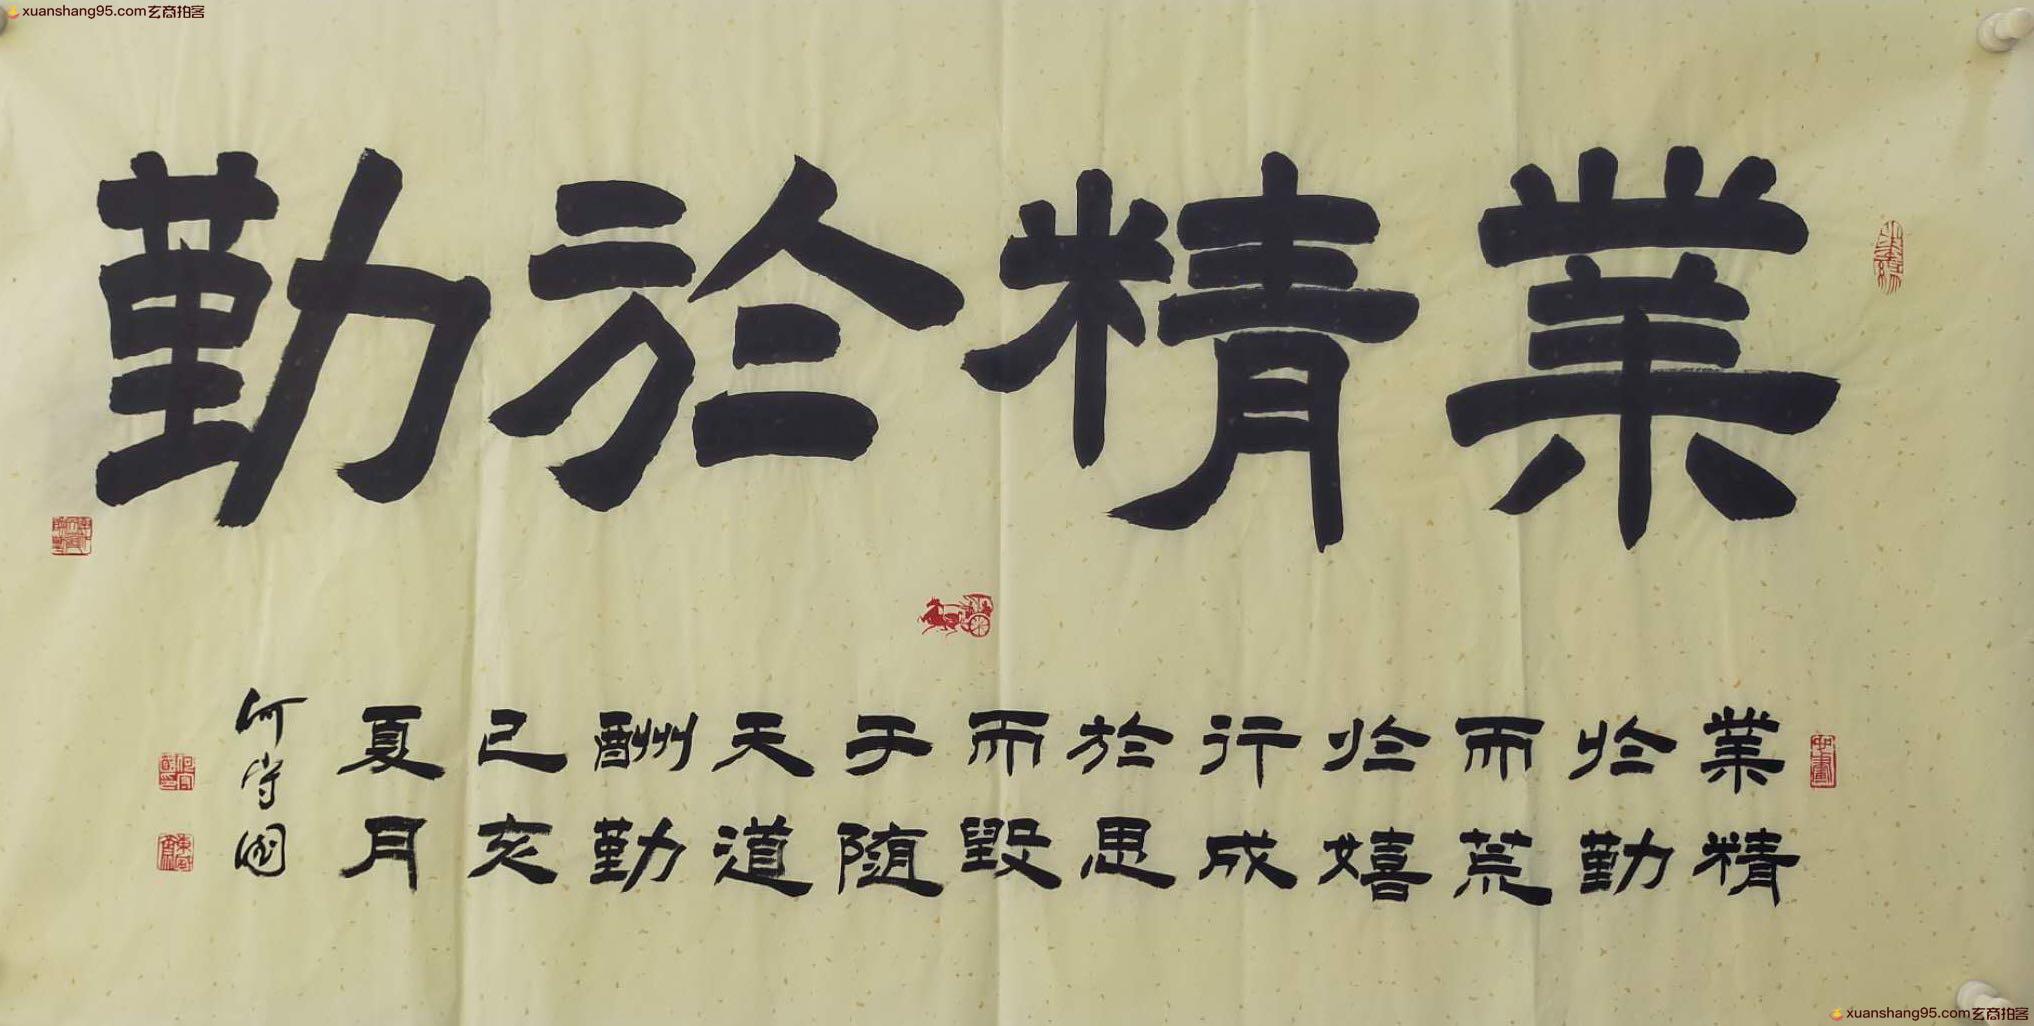 xuanshang95.com玄商拍客
業精於勤
業精
於勤
而荒
於嬉
行成
於思
而毀
于随
天道
酬勤
己亥
夏月
何守国
xuanshang95.com玄商拍客